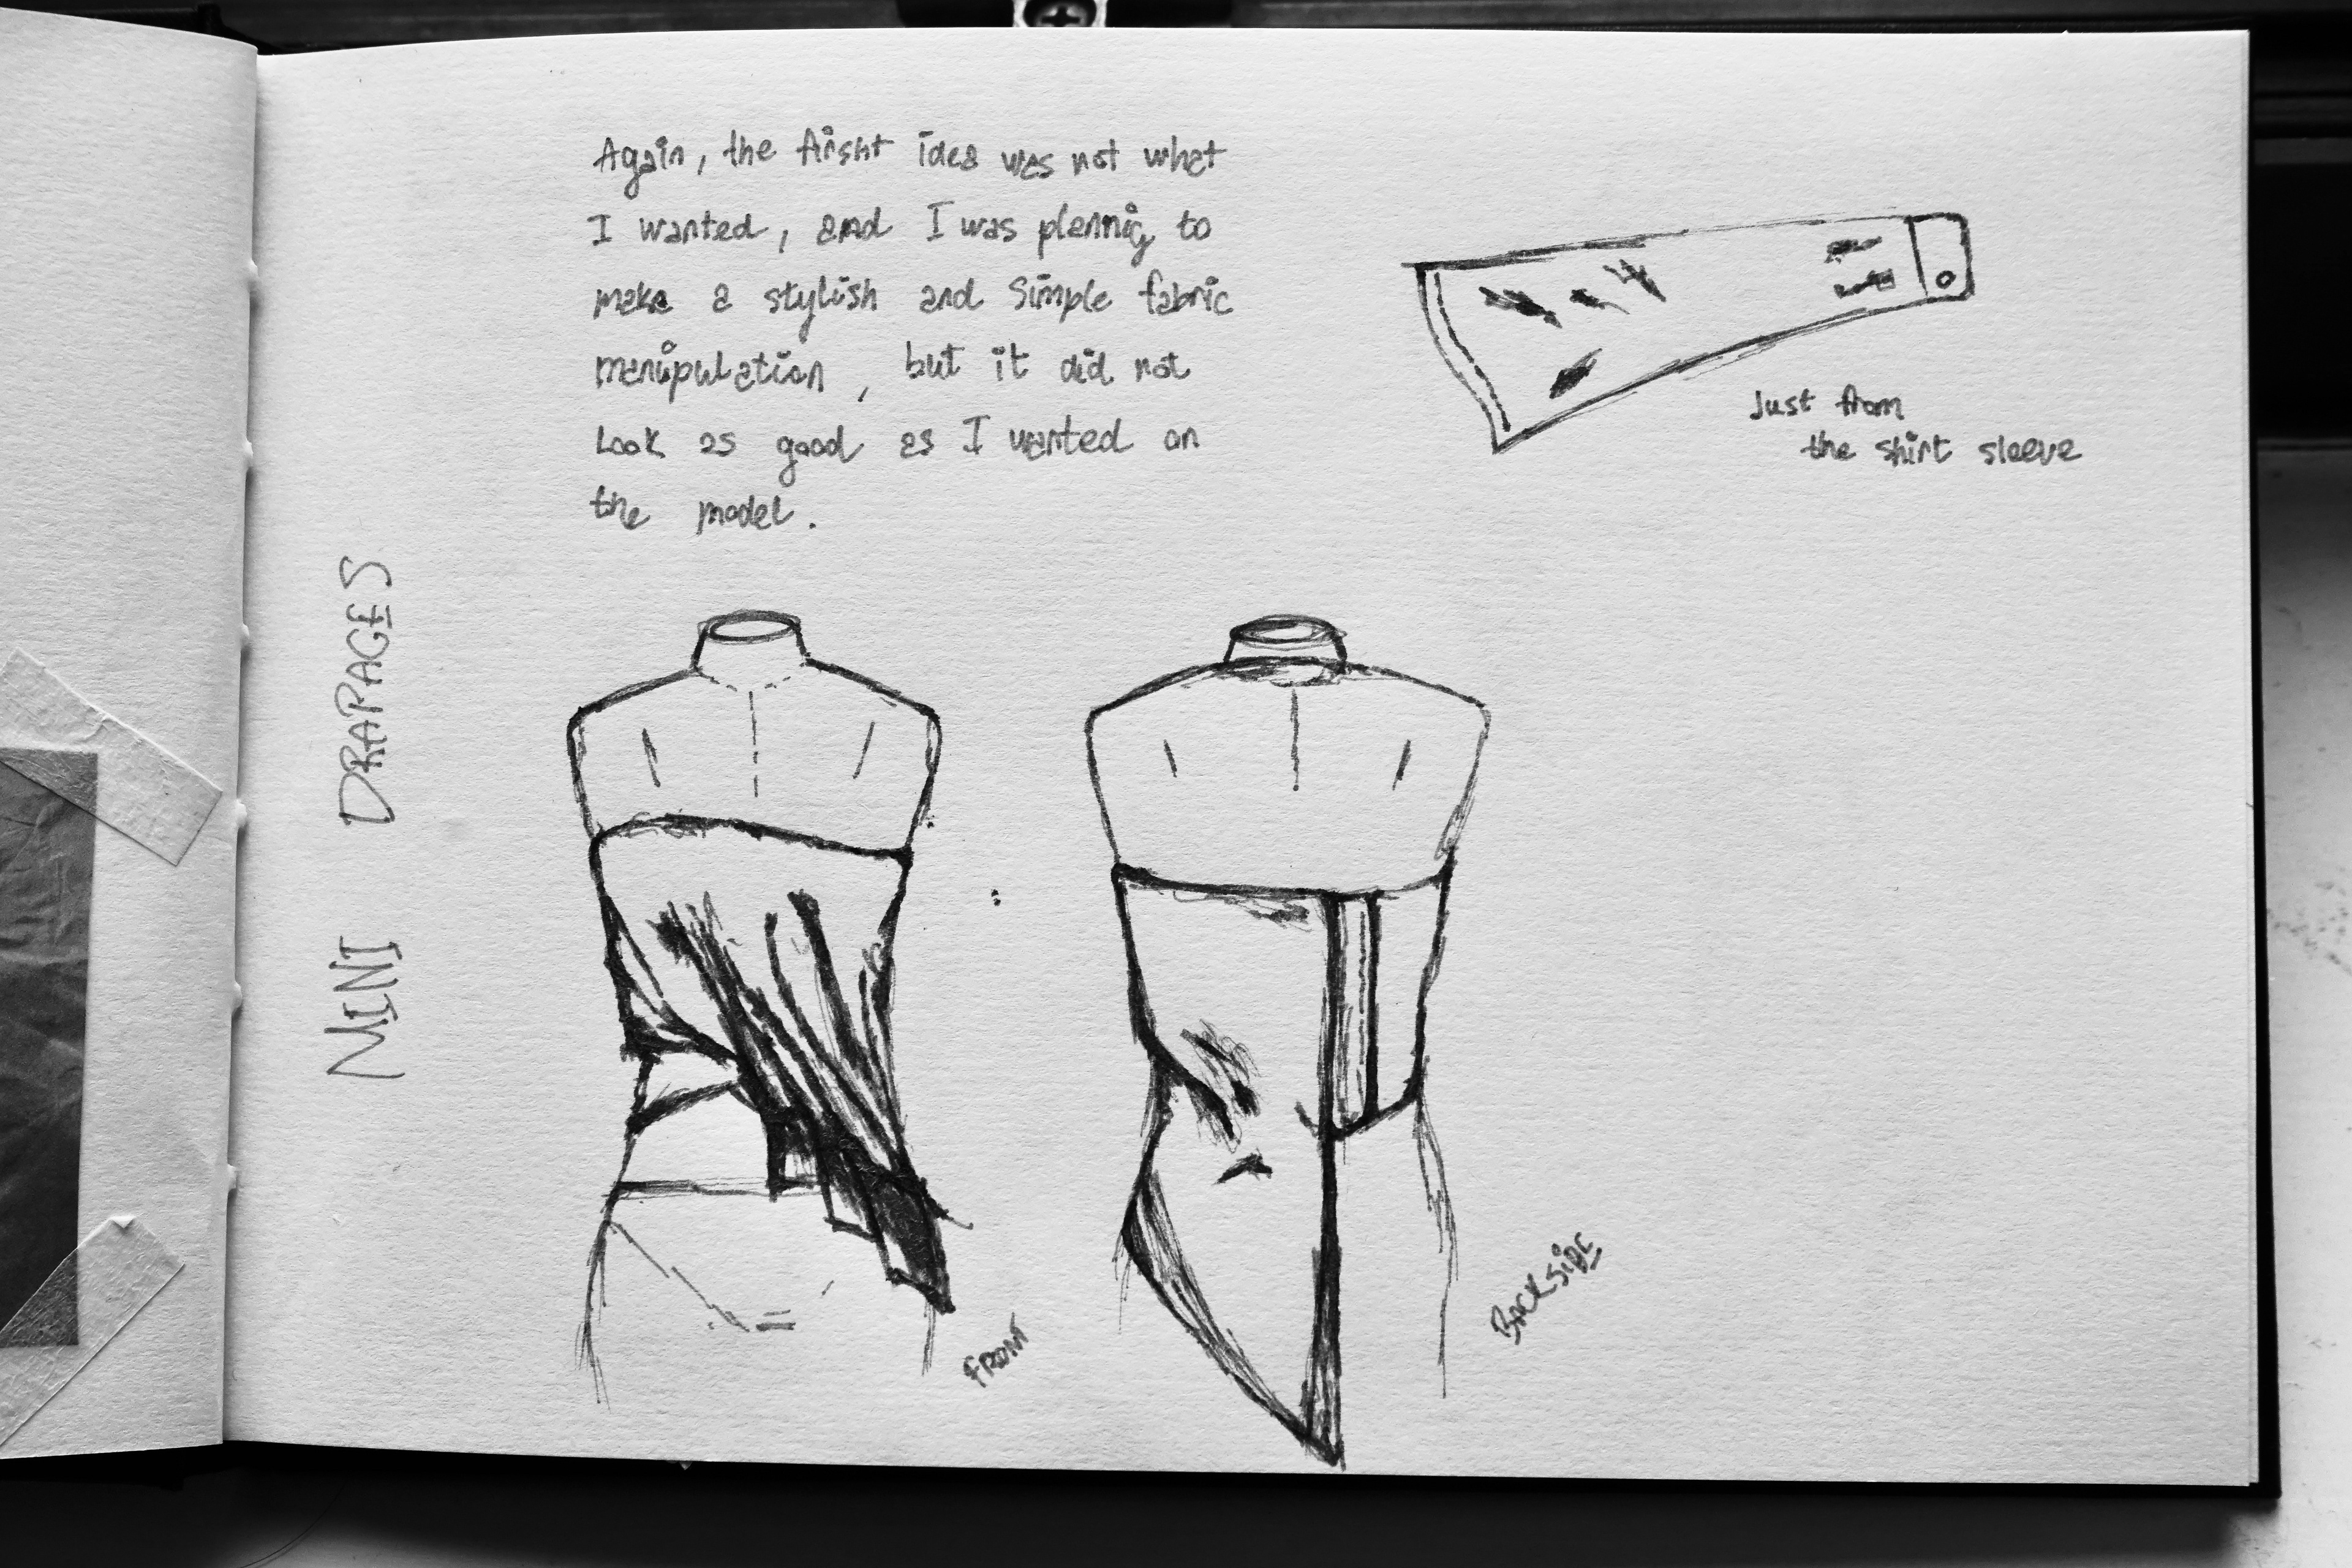 Again, the firsht idea was not what
I wanted, and I was plannig to
make a stylish and simple fabric
manipulation, but it did not
Look as good as I wanted on
the model.
Just from
the shirt sleeve
MINI DRAPAGES
FRONT
BACKSIDE